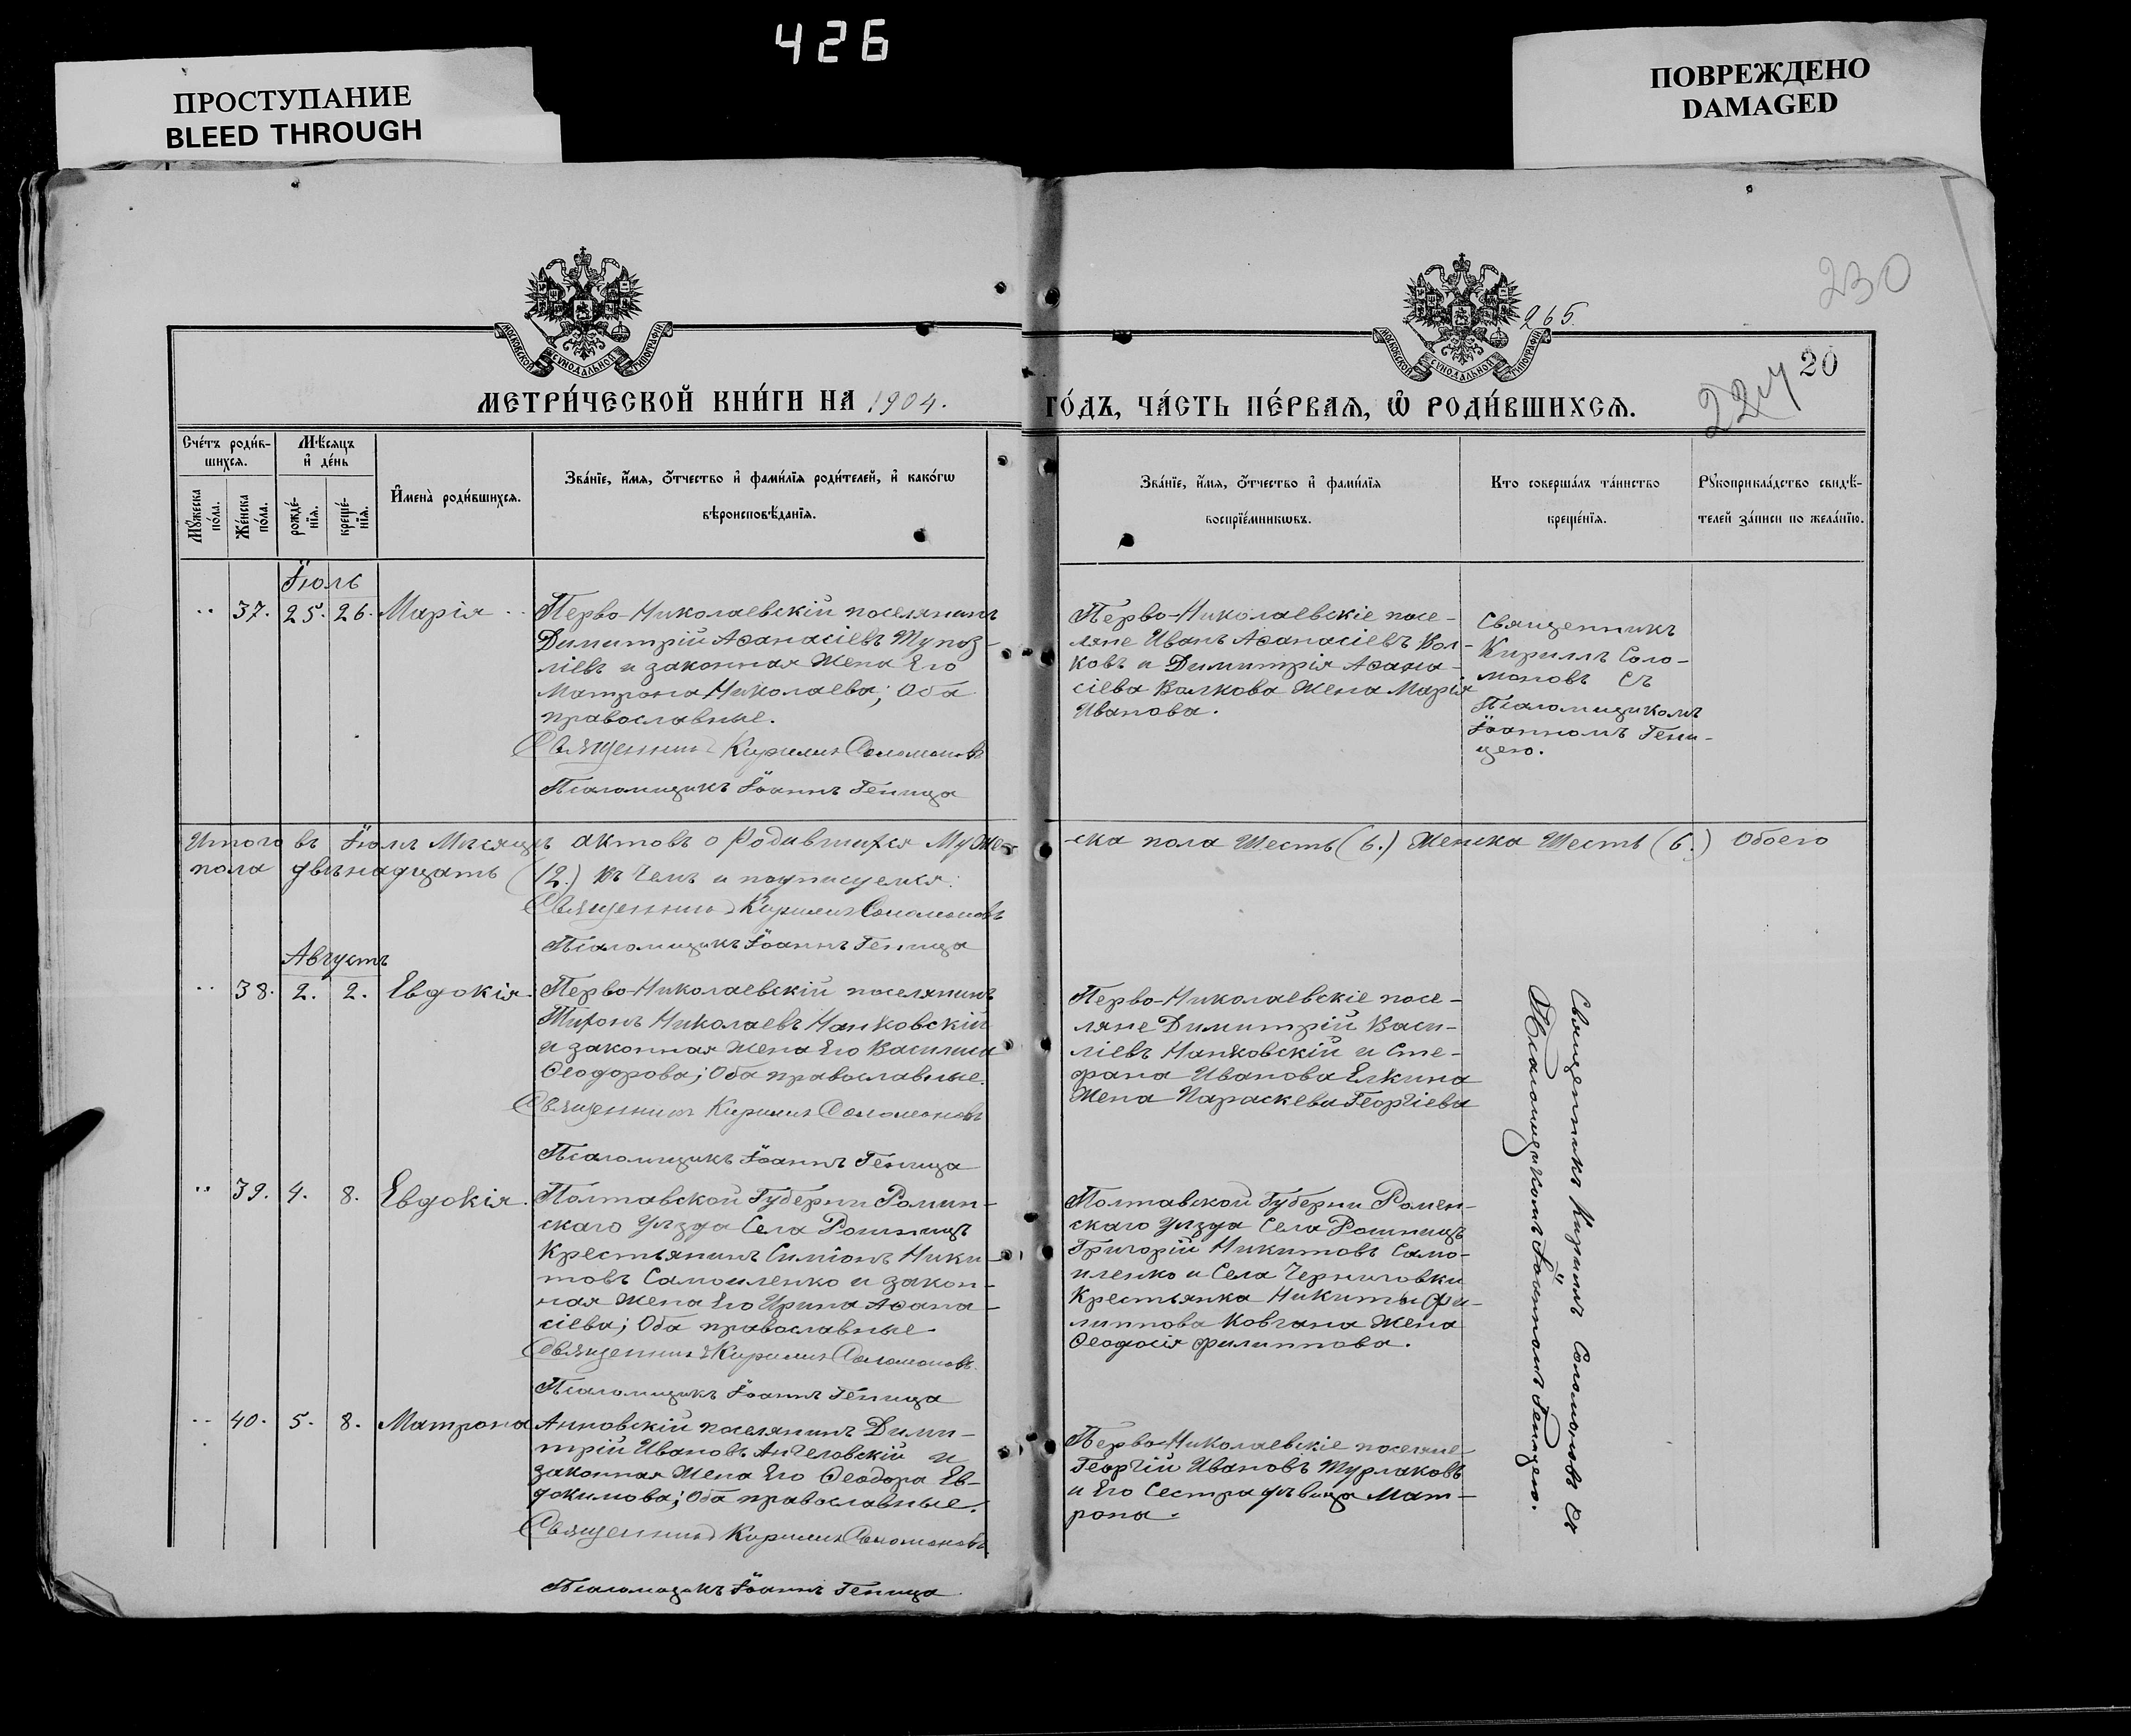 426
ПРОСТУПАНИЕ
BLEED THROUGH
ПОВРЕЖДЕНО
DAMAGED
230
265.
20
МОСКОВСКОЙ СѴНОДАЛЬНОЙ ТИПОГРАФІИ
МОСКОВСКОЙ СѴНОДАЛЬНОЙ ТИПОГРАФІИ
МЕТРИ́ЧЕСКОЙ КНИ́ГИ НА 1904.
ГО́ДЪ, ЧА́СТЬ ПЕ́РВАѦ, Ѽ РОДИ́ВШИХСѦ.
Сче́тъ роди́в-
шихсѧ.
Мѣ́сѧцъ
и҆ де́нь
Мꙋ́жеска
по́ла.
Же́нска
по́ла.
рожде́-
нїѧ.
креще́-
нїѧ.
И҆мена̀ роди́вшихсѧ.
Зва́нїе, и҆́мѧ, ѻ҆́тчество и҆ фами́лїѧ роди́телей, и҆ како́гѡ
вѣроисповѣ́данїѧ.
Зва́нїе, и҆́мѧ, ѻ҆́тчество и҆ фами́лїѧ
воспрїе́мникѡвъ.
Кто соверша́лъ та́инство
креще́нїѧ.
Рꙋкоприкла́дство свидѣ́-
телей за́писи по жела́нїю.
Іюль
37. 25. 26. Марія
Перво-Николаевскій поселянинъ
Димитрій Аѳанасіевъ Тупоз-
ліевъ и законная жена Его
Матрона Николаева; Оба
православные.
Священникъ Кириллъ Соломоновъ
Псаломщикъ Іоаннъ Геница
Перво-Николаевскіе посе-
ляне Иванъ Аѳанасіевъ Вол-
ковъ и Димитрія Аѳана-
сіева Волкова жена Марія
Иванова.
Священникъ
Кириллъ Соло-
моновъ Съ
Псаломщикомъ
Іоанномъ Гени-
цею.
Итого въ Іюлѣ Мѣсяцѣ актовъ о Родившихся Муже-
ска пола Шесть (6.) Женска Шесть (6.) Обоего
пола двѣнадцать (12.) въ Чемъ и подписуемся:
Священникъ Кириллъ Соломоновъ
Псаломщикъ Іоаннъ Геница
Августъ
38. 2. 2. Евдокія.
Перво-Николаевскій поселянинъ
Тихонъ Николаевъ Нанковскій
и законная жена Его Василиса
Ѳеодорова; Оба православные.
Священникъ Кириллъ Соломоновъ
Псаломщикъ Іоаннъ Геница
Перво-Николаевскіе посе-
ляне Димитрій Васи-
ліевъ Нанковскій и Сте-
фана Иванова Елкина
Жена Параскева Георгіева
39. 4. 8. Евдокія.
Полтавской Губерніи Ромин-
скаго Уѣзда Села
Крестьянинъ Симіонъ Ники-
товъ Самоиленко и закон-
ная жена Его Ирина Аѳана-
сіева; Оба православные
Священникъ Кириллъ Соломоновъ.
Псаломщикъ Іоаннъ Геница
Полтавской Губерніи Ромен-
скаго уѣзда Села
Григорій Никитовъ Само-
иленко и Села Черниговки
Крестьянка Никиты Фи-
липпова Ковгана Жена
Ѳеодосія Филиппова.
40. 5. 8. Матрона
Анновскій поселянинъ Дими-
трій Ивановъ Ангеловскій и
законная жена Его Ѳеодора Ев-
докимова; Оба православные.
Священникъ Кириллъ Соломоновъ.
Псаломщикъ Іоаннъ Геница
Перво-Николаевскіе поселяне
Георгій Ивановъ Турлаковъ
и Его Сестра дѣвица Мат-
рона.
Священникъ Кириллъ Соломоновъ Съ
Псаломщикомъ Іоанномъ Геницею.